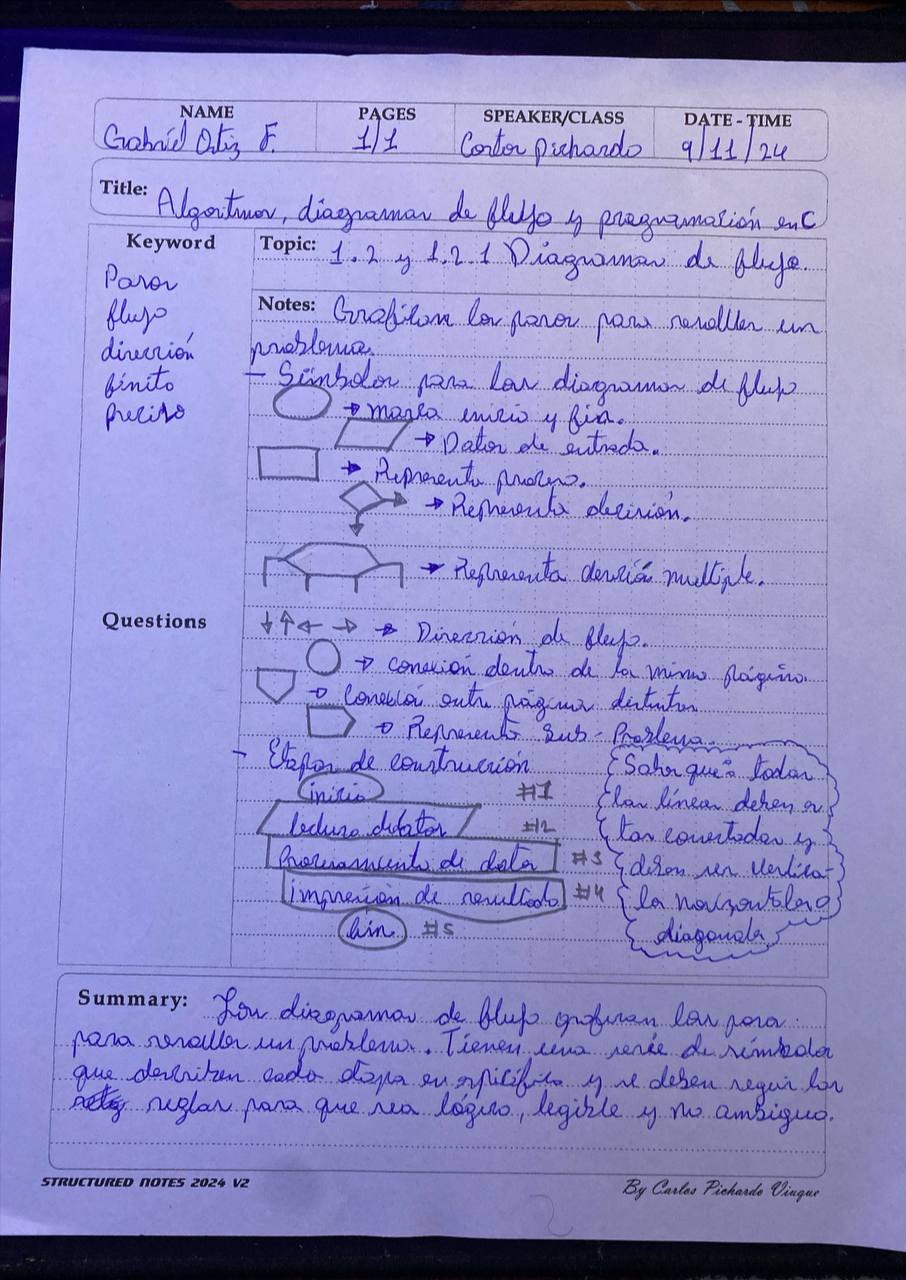 NAME PAGES SPEAKER/CLASS DATE - TIME
Gabriel Ortiz F. 1/1 Pichardo 9/11/24
Title: Algoritmos, diagramas de flujo y programación en C
Keyword
Pasos
flujo
dirección
finito
preciso
Topic: 1.2 y 1.2.1 Diagramas de flujo.
Notes: Grafican los pasos para resolver un
problema.
- Símbolos para los diagramas de flujo
→ marca inicio y fin.
→ Datos de entrada.
→ Representa proceso.
→ Representa decisión.
→ Representa decisión multiple.
Questions
↓ ↑ ← → → Dirección de flujo.
→ conexión dentro de la misma página.
→ Conexión entre página distintas
→ Representa Sub-Problema.
- Etapas de construcción
inicio #1
lectura de datos #2
Procesamiento de datos #3
impresión de resultado #4
fin #5
Saber que: todas
las líneas deben es
tar conectadas y
deben ser vertica-
les horizontales o
diagonales
Summary: Los diagramas de flujo grafican los pasos
para resolver un problema. Tienen una serie de símbolos
que describen cada etapa en especifico y se deben seguir las
reglas para que sea lógico, legible y no ambiguo.
STRUCTURED NOTES 2024 V2
By Carlos Pichardo Viuque